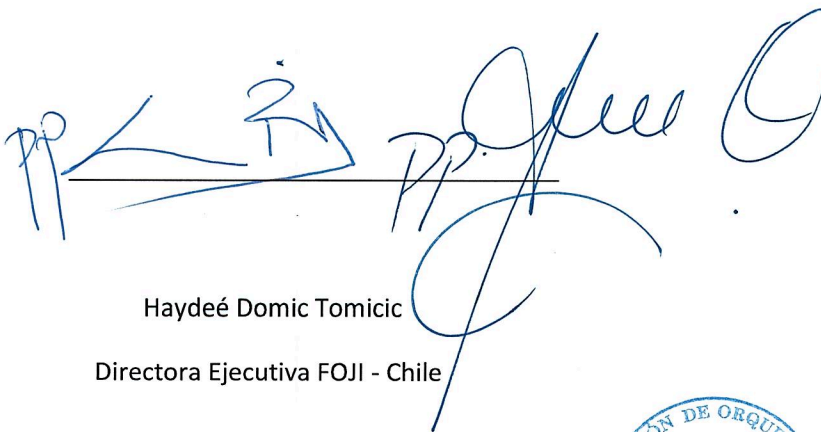 pp pp.
Haydeé Domic Tomicic
Directora Ejecutiva FOJI - Chile
DE ORQU